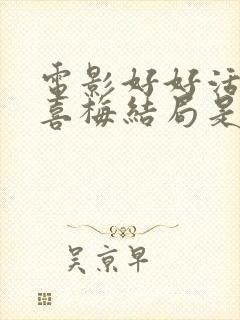 電影好好活
喜梅結局是
吴京早